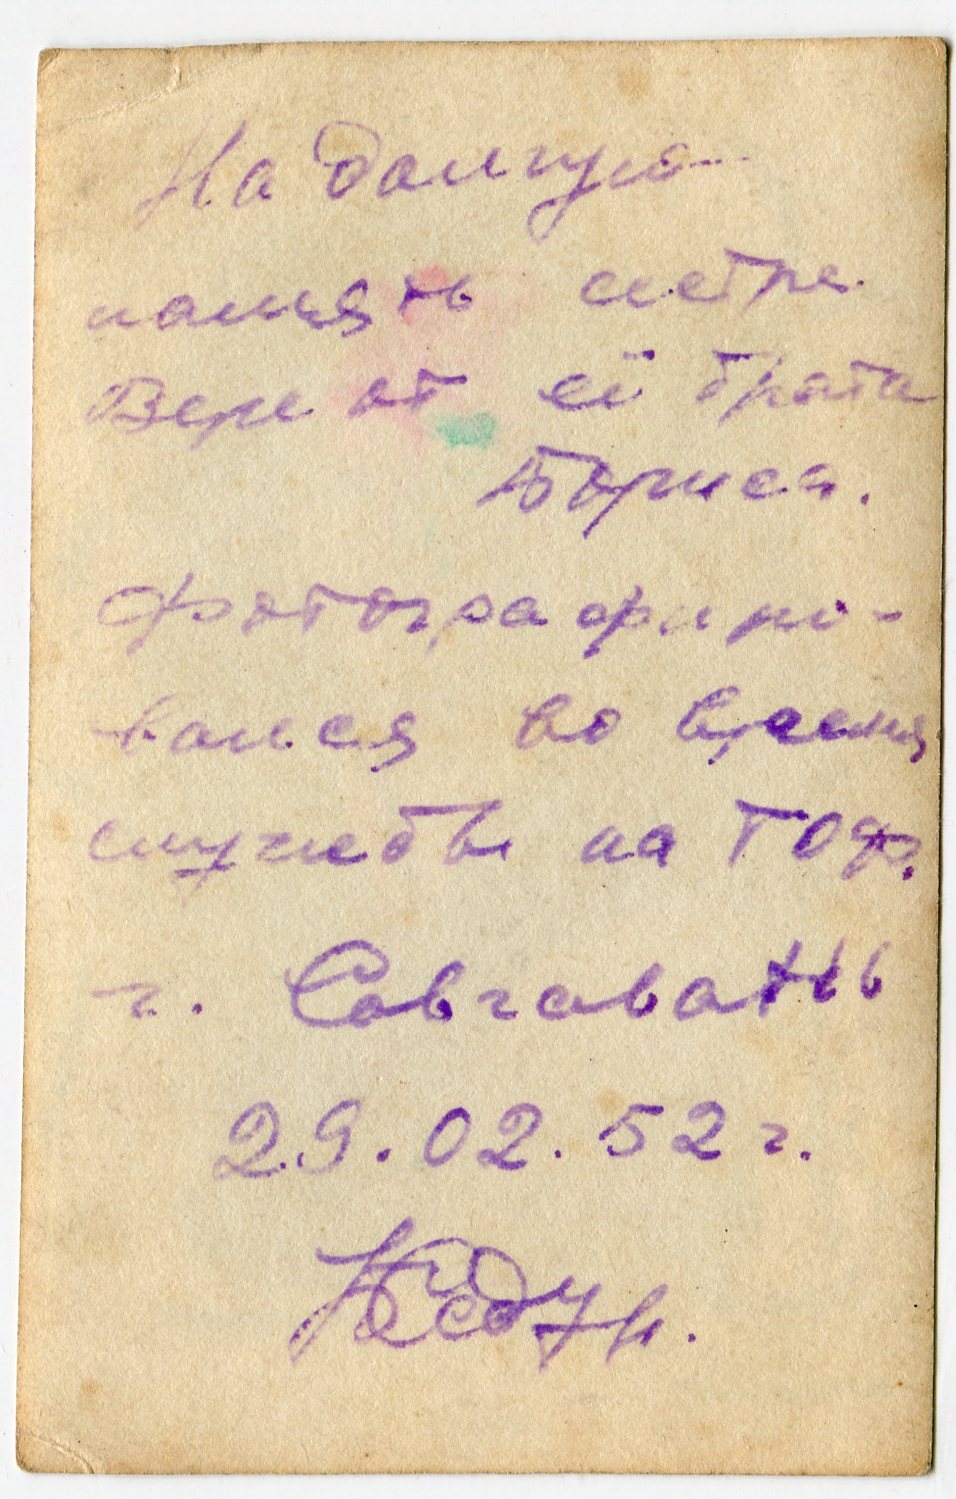 На долгую
память сестре
Вере от её брата
Бориса.
Фотографиро-
вался во время
службы на ТОФ.
г. Совгавань
29.02.52 г.